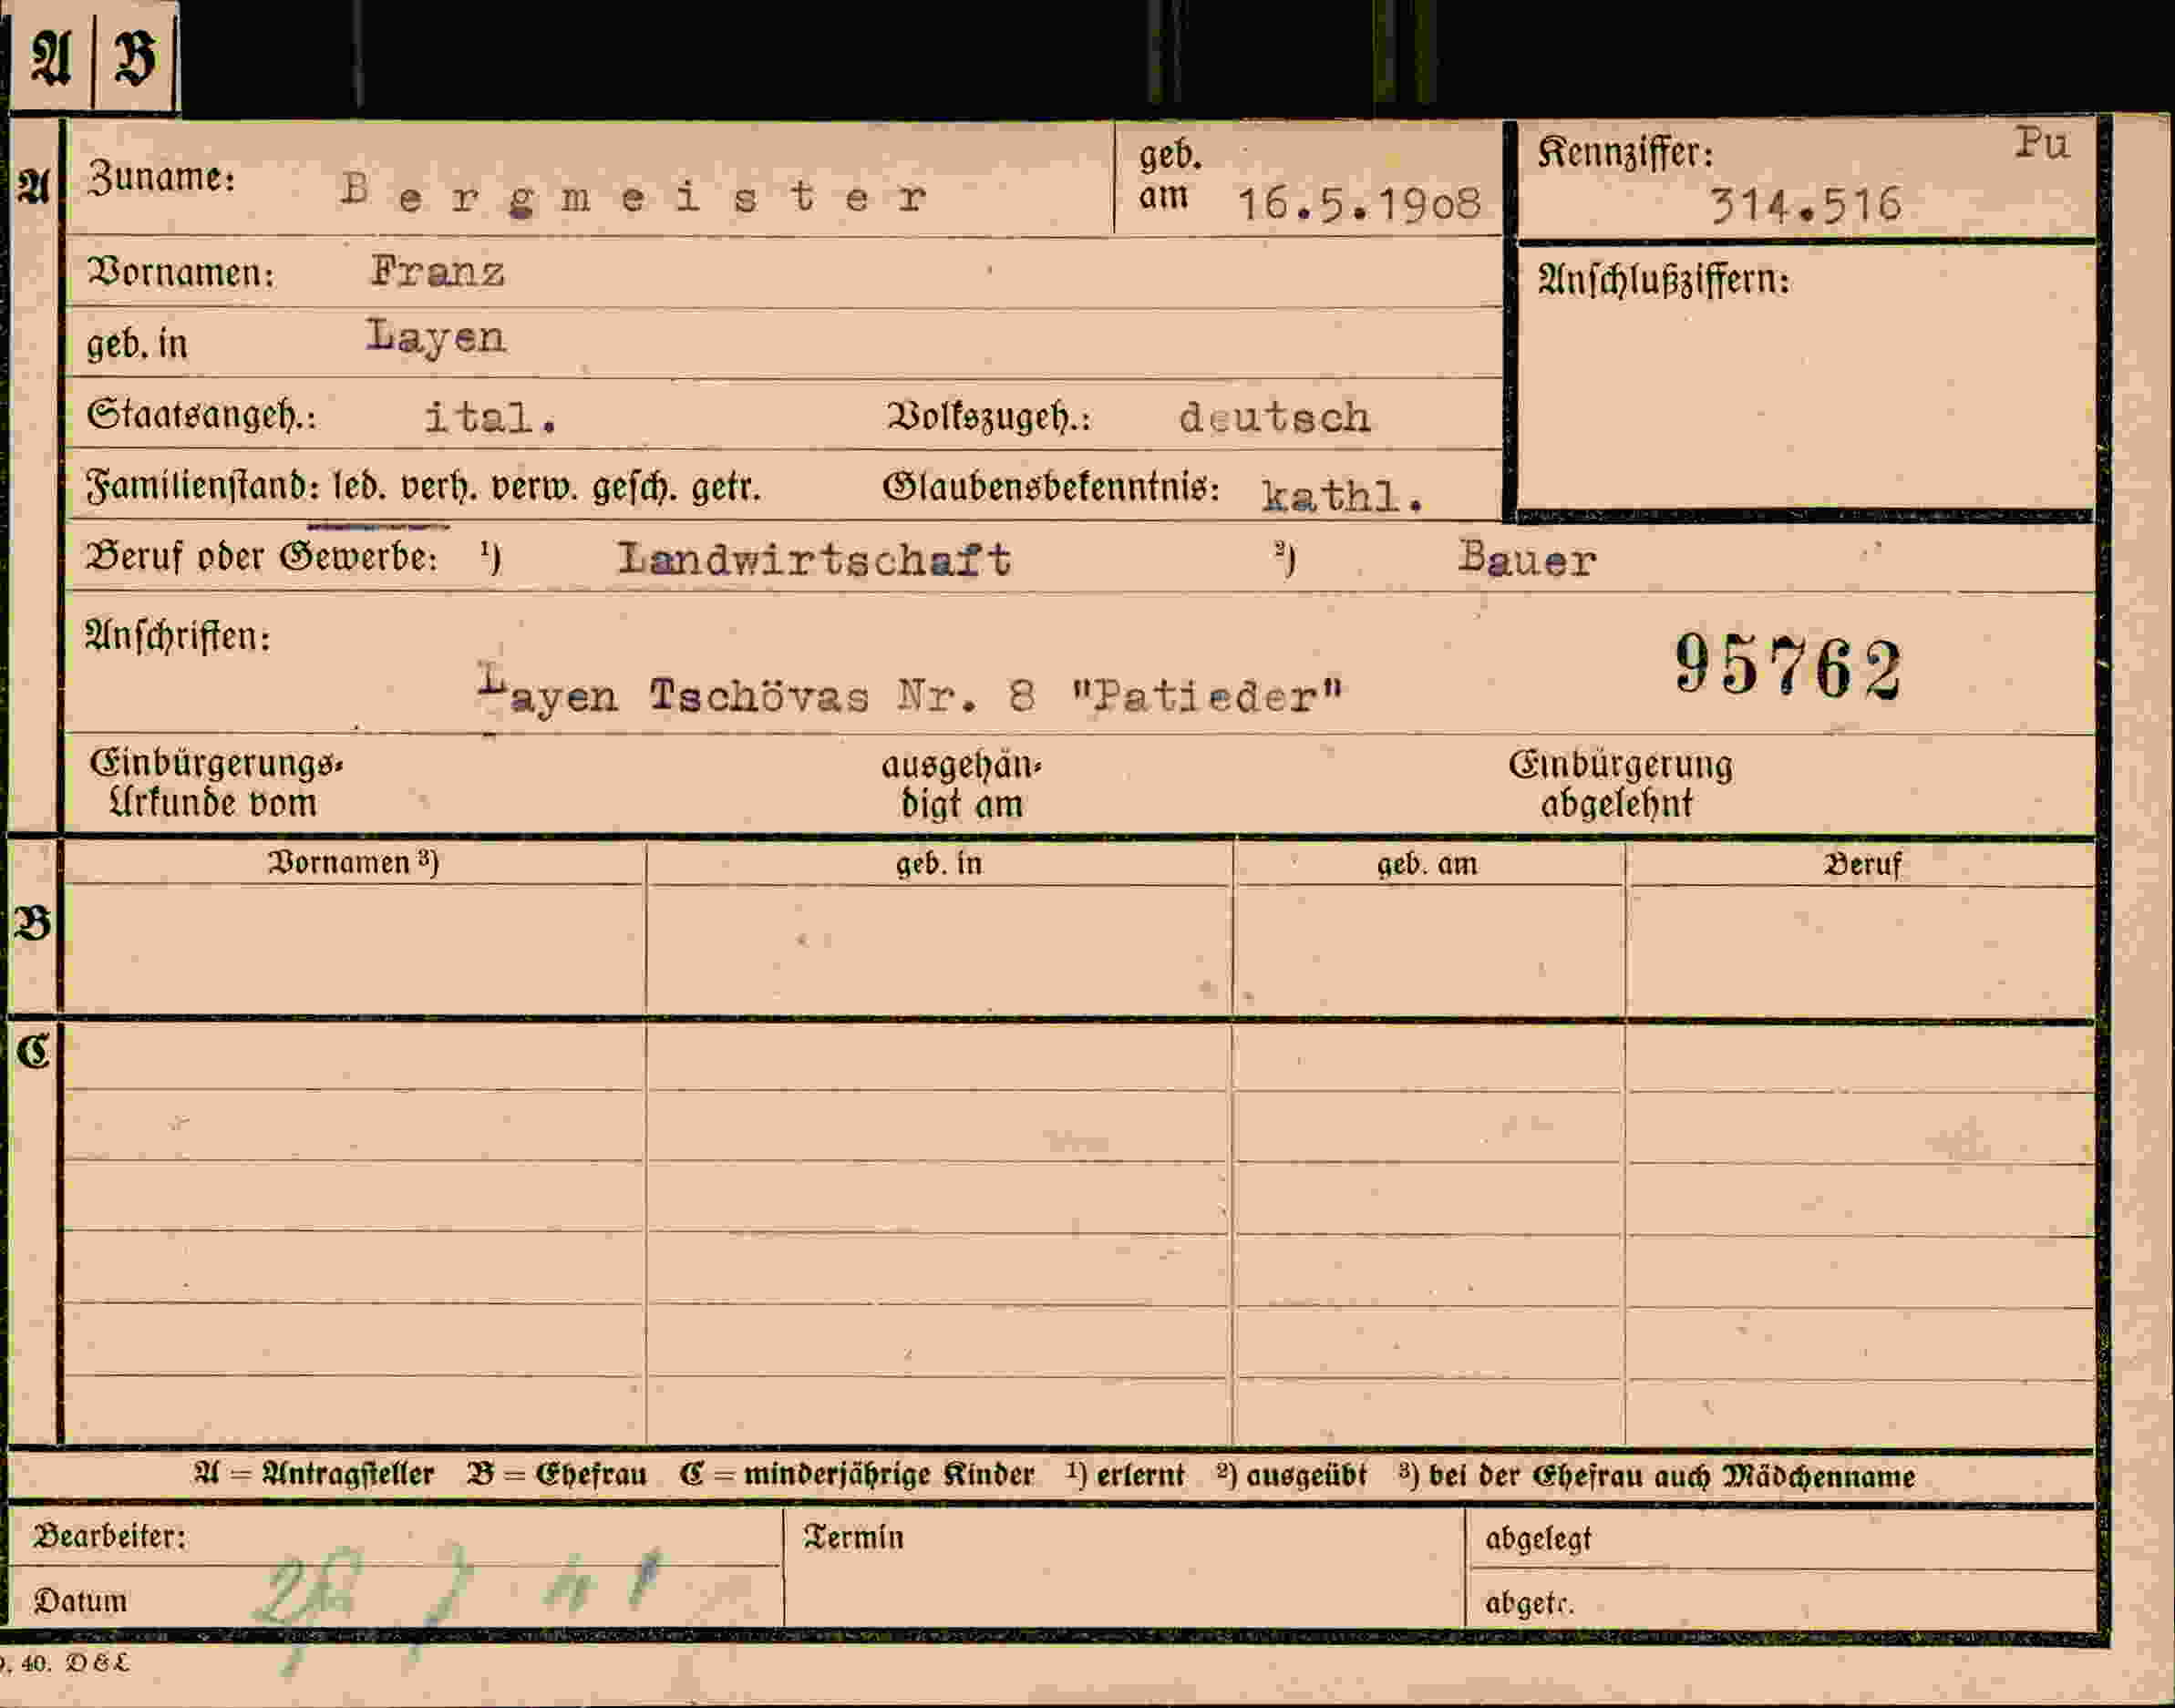 A B
A Zuname: Bergmeister geb. am 16.5.1908 Kennziffer: Pu
314.516
Vornamen: Franz Anschlußziffern:
geb. in Layen
Staatsangeh.: ital. Volkszugeh.: deutsch
Familienstand: led. verh. verw. gesch. getr. Glaubensbekenntnis: kathl.
Beruf oder Gewerbe: ¹) Landwirtschaft ²) Bauer
Anschriften: 95762
Layen Tschövas Nr. 8 "Patieder"
Einbürgerungs- ausgehän- Einbürgerung
Urkunde vom digt am abgelehnt
Vornamen ³) geb. in geb. am Beruf
B
C
A = Antragsteller B = Ehefrau C = minderjährige Kinder ¹) erlernt ²) ausgeübt ³) bei der Ehefrau auch Mädchenname
Bearbeiter: Termin abgelegt
Datum abgetr.
40. D&L